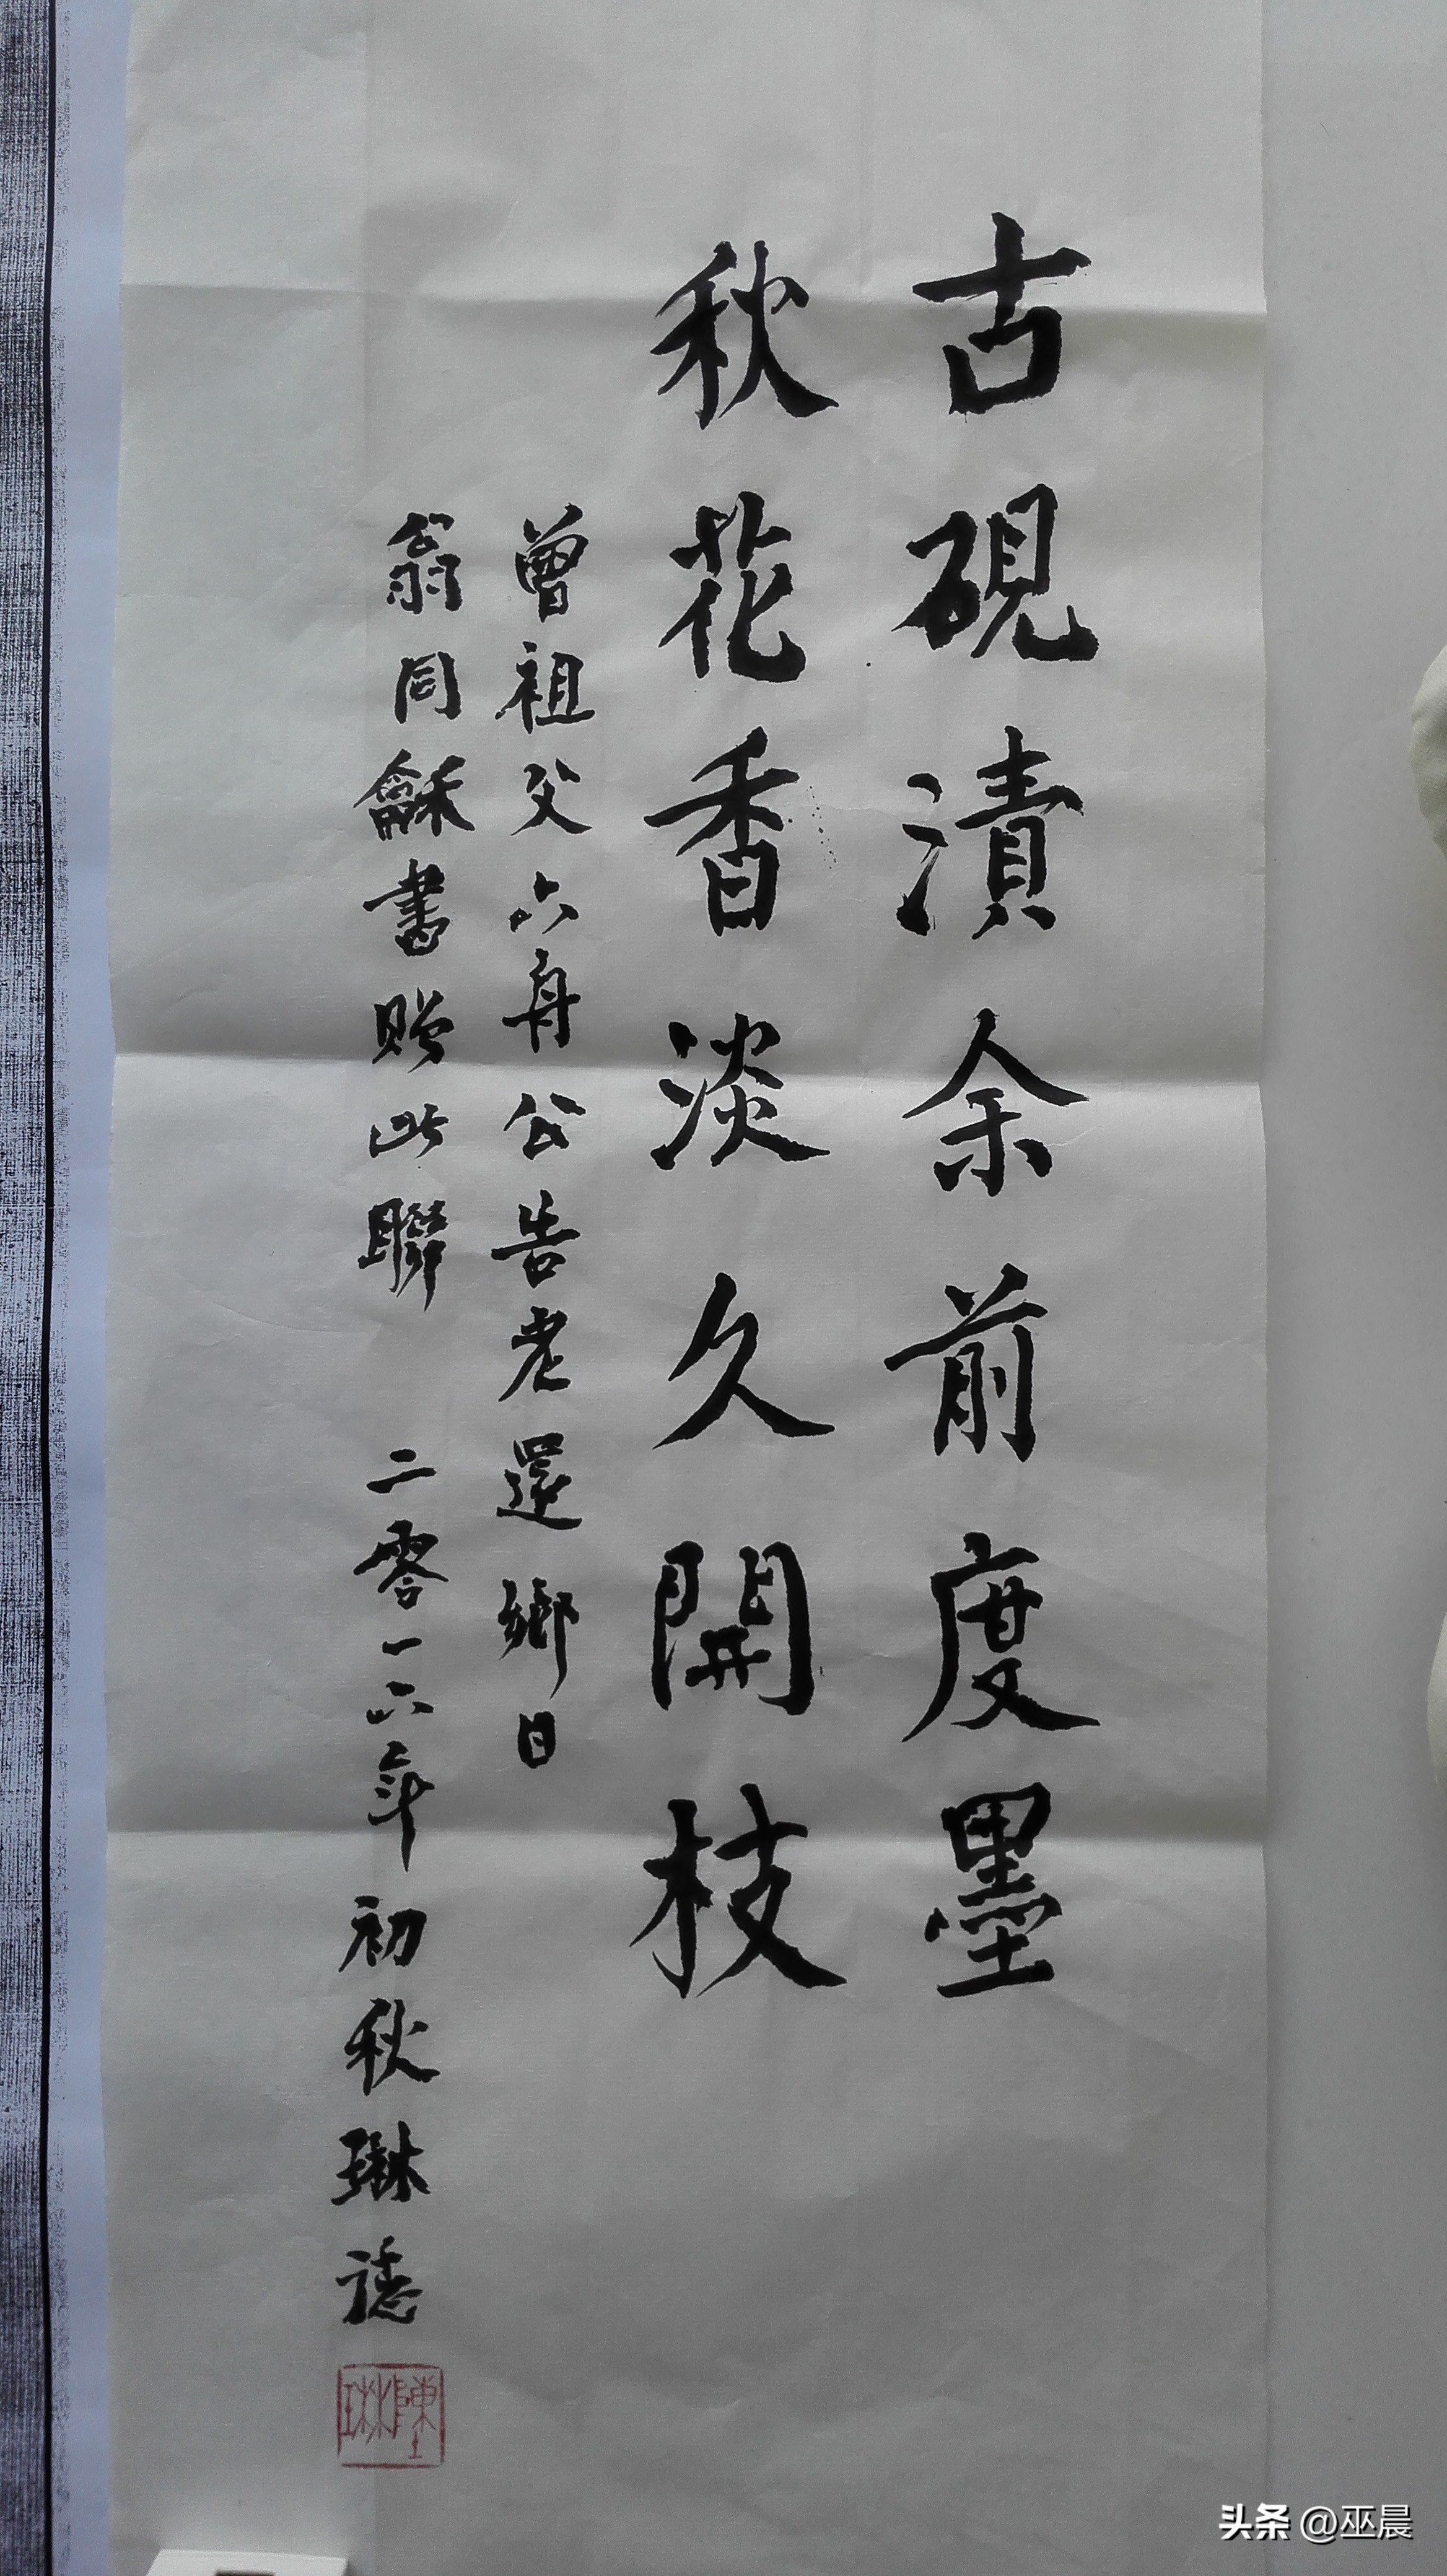 古硯漬余前度墨
秋花香淡久開枝
曾祖父六舟公告老還鄉日
翁同龢書贈此聯 二零一六年初秋琳誌
陳琳
头条 @巫晨